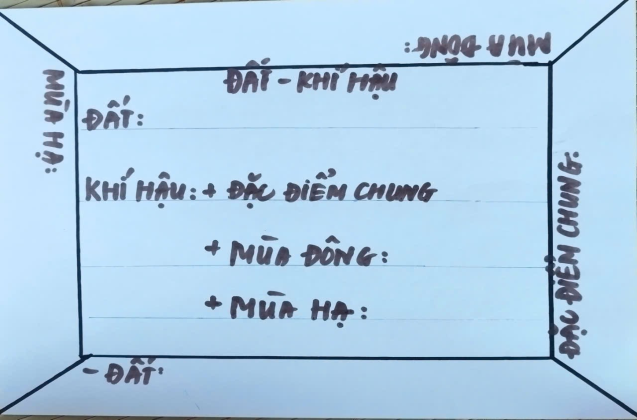 MÙA ĐÔNG:
MÙA HẠ:
ĐẤT - KHÍ HẬU
ĐẤT:
KHÍ HẬU: + ĐẶC ĐIỂM CHUNG
+ MÙA ĐÔNG:
+ MÙA HẠ:
ĐẶC ĐIỂM CHUNG:
- ĐẤT: